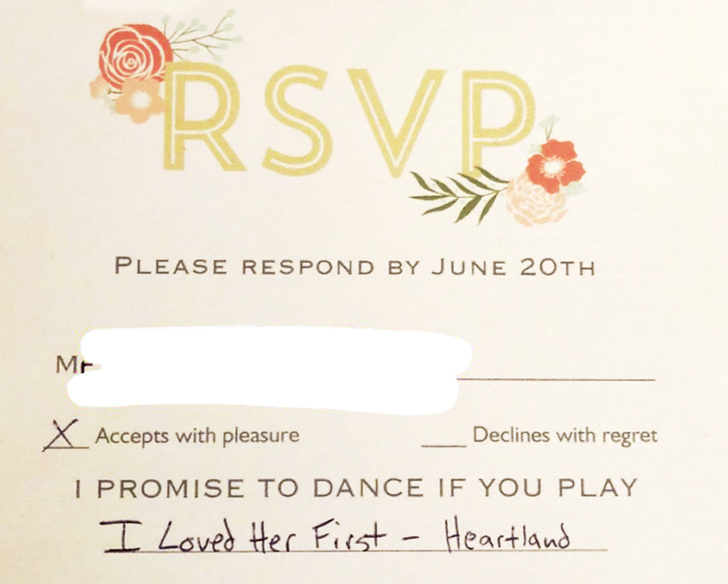 RSVP
PLEASE RESPOND BY JUNE 20TH
X Accepts with pleasure ___ Declines with regret
I PROMISE TO DANCE IF YOU PLAY
I Loved Her First - Heartland